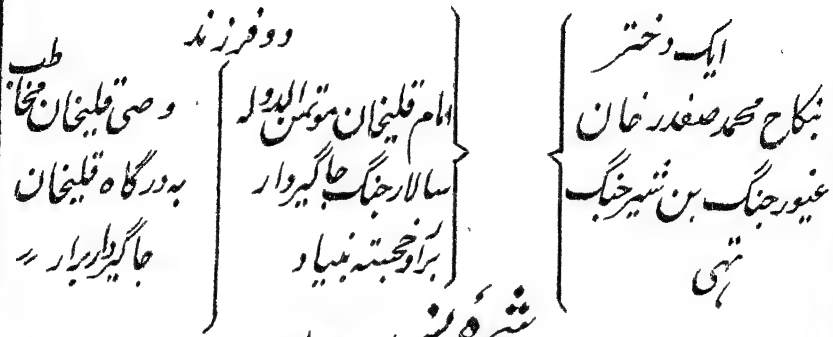 ایک دختر
بنکاح محمد صفدر خان
غیور جنگ بن شیر جنگ
تہی
دو فرزند
امام قلیخان موتمن الدولہ
سالار جنگ جاگیردار
برار و خجستہ بنیاد
وصی قلیخان مخاطب
بہ درگاہ قلیخان
جاگیردار برار